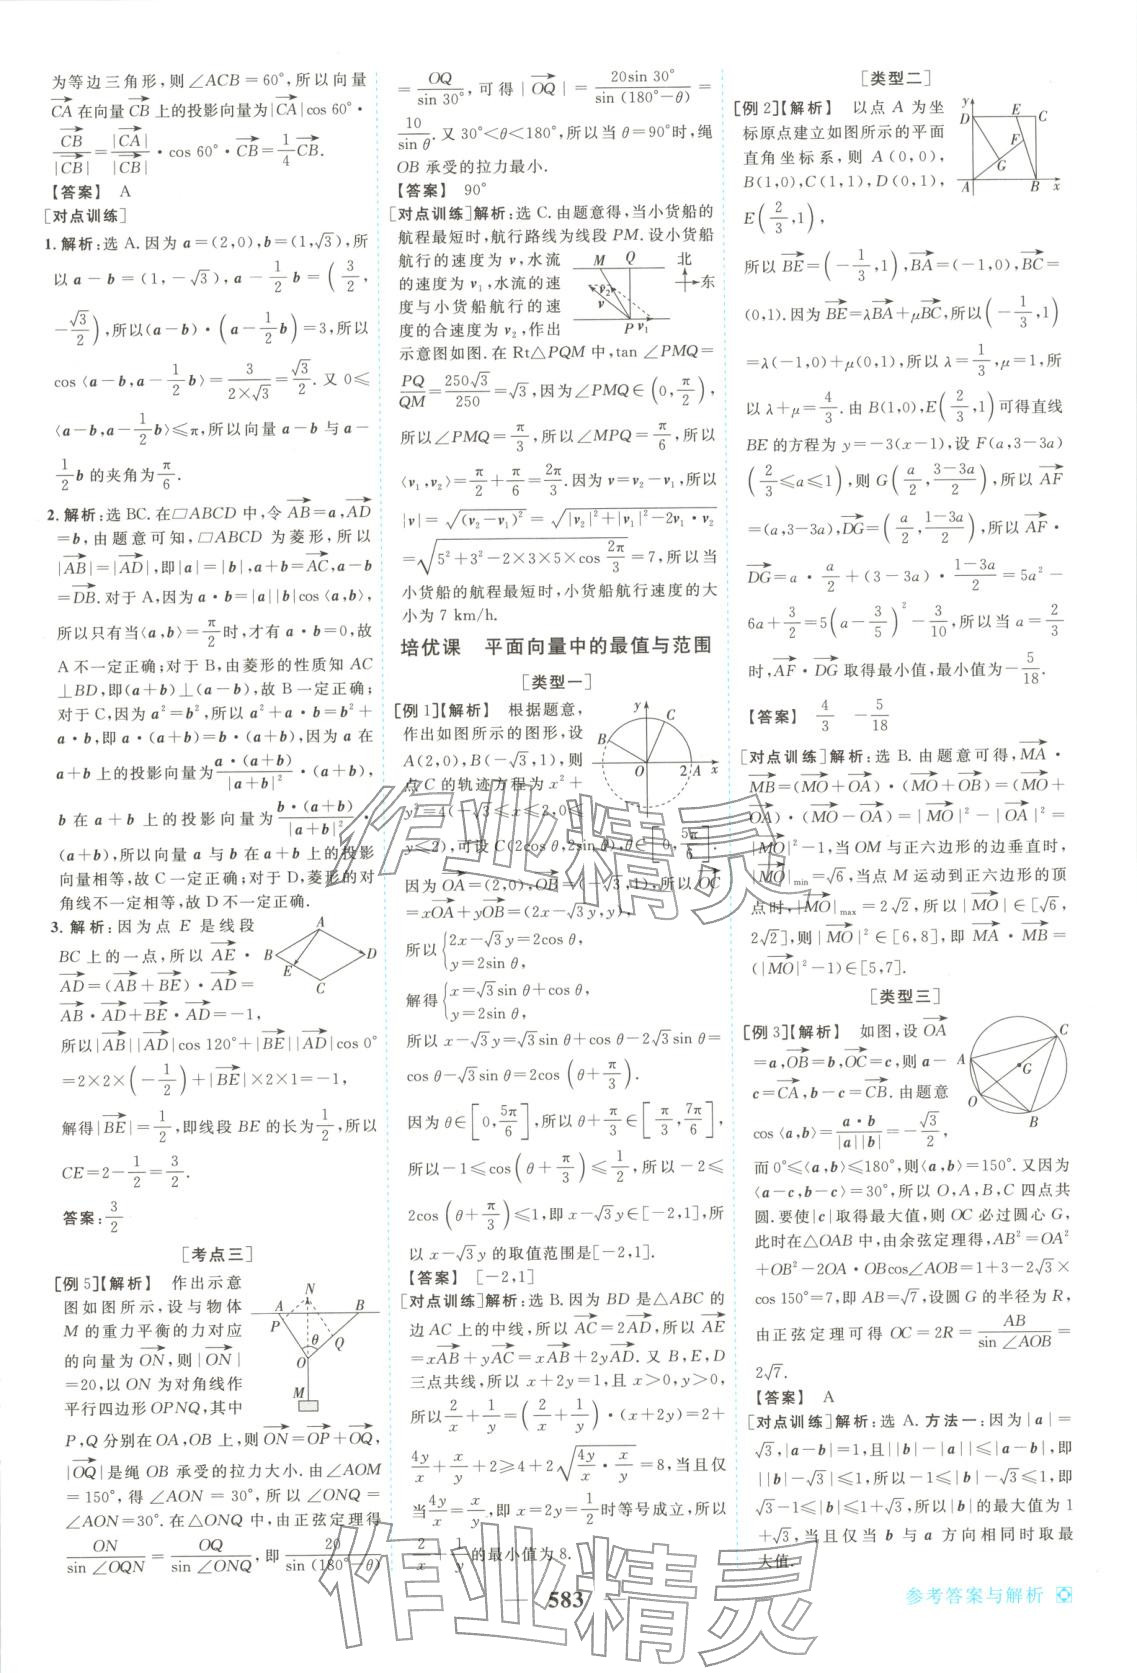 为等边三角形,则∠ACB=60°,所以向量
$\overrightarrow{CA}$在向量$\overrightarrow{CB}$上的投影向量为|$\overrightarrow{CA}$|cos 60°·
$\frac{\overrightarrow{CB}}{|\overrightarrow{CB}|}=\frac{|\overrightarrow{CA}|}{|\overrightarrow{CB}|}$·cos 60°·$\overrightarrow{CB}=\frac{1}{4}\overrightarrow{CB}$.
【答案】 A
[对点训练]
1.解析:选A.因为a=(2,0),b=(1,$\sqrt{3}$),所
以a-b=(1,-$\sqrt{3}$),a-$\frac{1}{2}$b=($\frac{3}{2}$,
-$\frac{\sqrt{3}}{2}$),所以(a-b)·(a-$\frac{1}{2}$b)=3,所以
cos〈a-b,a-$\frac{1}{2}$b〉=$\frac{3}{2×\sqrt{3}}=\frac{\sqrt{3}}{2}$.又0≤
〈a-b,a-$\frac{1}{2}$b〉≤π,所以向量a-b与a-
$\frac{1}{2}$b的夹角为$\frac{π}{6}$.
2.解析:选BC.在▱ABCD中,令$\overrightarrow{AB}$=a,$\overrightarrow{AD}$
=b,由题意可知,▱ABCD为菱形,所以
|$\overrightarrow{AB}$|=|$\overrightarrow{AD}$|,即|a|=|b|,a+b=$\overrightarrow{AC}$,a-b
=$\overrightarrow{DB}$.对于A,因为a·b=|a||b|cos〈a,b〉,
所以只有当〈a,b〉=$\frac{π}{2}$时,才有a·b=0,故
A不一定正确;对于B,由菱形的性质知AC
⊥BD,即(a+b)⊥(a-b),故B一定正确;
对于C,因为a²=b²,所以a²+a·b=b²+
a·b,即a·(a+b)=b·(a+b),因为a在
a+b上的投影向量为$\frac{a·(a+b)}{|a+b|^2}$·(a+b),
b在a+b上的投影向量为$\frac{b·(a+b)}{|a+b|^2}$·
(a+b),所以向量a与b在a+b上的投影
向量相等,故C一定正确;对于D,菱形的对
角线不一定相等,故D不一定正确.
3.解析:因为点E是线段
BC上的一点,所以$\overrightarrow{AE}$·
$\overrightarrow{AD}$=($\overrightarrow{AB}$+$\overrightarrow{BE}$)·$\overrightarrow{AD}$=
$\overrightarrow{AB}$·$\overrightarrow{AD}$+$\overrightarrow{BE}$·$\overrightarrow{AD}$=-1,
A
B
D
E
C
所以|$\overrightarrow{AB}$||$\overrightarrow{AD}$|cos 120°+|$\overrightarrow{BE}$||$\overrightarrow{AD}$|cos 0°
=2×2×(-$\frac{1}{2}$)+|$\overrightarrow{BE}$|×2×1=-1,
解得|$\overrightarrow{BE}$|=$\frac{1}{2}$,即线段BE的长为$\frac{1}{2}$,所以
CE=2-$\frac{1}{2}$=$\frac{3}{2}$.
答案:$\frac{3}{2}$
[考点三]
[例5]【解析】 作出示意
图如图所示,设与物体
M的重力平衡的力对应
的向量为$\overrightarrow{ON}$,则|$\overrightarrow{ON}$|
=20,以ON为对角线作
平行四边形OPNQ,其中
A
N
B
P
Q
θ
O
M
P,Q分别在OA,OB上,则$\overrightarrow{ON}$=$\overrightarrow{OP}$+$\overrightarrow{OQ}$,
|$\overrightarrow{OQ}$|是绳OB承受的拉力大小.由∠AOM
=150°,得∠AON=30°,所以∠ONQ=
∠AON=30°.在△ONQ中,由正弦定理得
$\frac{ON}{\sin∠OQN}=\frac{OQ}{\sin∠ONQ}$,即$\frac{20}{\sin(180°-θ)}$
=$\frac{OQ}{\sin 30°}$,可得|$\overrightarrow{OQ}$|=$\frac{20\sin 30°}{\sin(180°-θ)}$=
$\frac{10}{\sin θ}$.又30°<θ<180°,所以当θ=90°时,绳
OB承受的拉力最小.
【答案】 90°
[对点训练]解析:选C.由题意得,当小货船的
航程最短时,航行路线为线段PM.设小货船
航行的速度为v,水流
的速度为v₁,水流的速
度与小货船航行的速
度的合速度为v₂,作出
M
Q
北
东
v₂
v
P
v₁
示意图如图.在Rt△PQM中,tan∠PMQ=
$\frac{PQ}{QM}=\frac{250\sqrt{3}}{250}=\sqrt{3}$,因为∠PMQ∈(0,$\frac{π}{2}$),
所以∠PMQ=$\frac{π}{3}$,所以∠MPQ=$\frac{π}{6}$,所以
〈v₁,v₂〉=$\frac{π}{2}+\frac{π}{6}=\frac{2π}{3}$.因为v=v₂-v₁,所以
|v|=$\sqrt{(v_2-v_1)^2}=\sqrt{|v_2|^2+|v_1|^2-2v_1·v_2}$
=$\sqrt{5^2+3^2-2×3×5×\cos\frac{2π}{3}}$=7,所以当
小货船的航程最短时,小货船航行速度的大
小为7 km/h.
培优课 平面向量中的最值与范围
[类型一]
[例1]【解析】 根据题意,
作出如图所示的图形,设
A(2,0),B(-$\sqrt{3}$,1),则
点C的轨迹方程为x²+
y
C
B
O
2
A
x
y²=4(-$\sqrt{3}$≤x≤2,0≤
y≤2),可设C(2cos θ,2sin θ),θ∈[0,$\frac{5π}{6}$].
因为$\overrightarrow{OA}$=(2,0),$\overrightarrow{OB}$=(-$\sqrt{3}$,1),所以$\overrightarrow{OC}$
=x$\overrightarrow{OA}$+y$\overrightarrow{OB}$=(2x-$\sqrt{3}$y,y),
所以{2x-$\sqrt{3}$y=2cos θ,
y=2sin θ,
解得{x=$\sqrt{3}$sin θ+cos θ,
y=2sin θ,
所以x-$\sqrt{3}$y=$\sqrt{3}$sin θ+cos θ-2$\sqrt{3}$sin θ=
cos θ-$\sqrt{3}$sin θ=2cos(θ+$\frac{π}{3}$).
因为θ∈[0,$\frac{5π}{6}$],所以θ+$\frac{π}{3}$∈[$\frac{π}{3}$,$\frac{7π}{6}$],
所以-1≤cos(θ+$\frac{π}{3}$)≤$\frac{1}{2}$,所以-2≤
2cos(θ+$\frac{π}{3}$)≤1,即x-$\sqrt{3}$y∈[-2,1],所
以x-$\sqrt{3}$y的取值范围是[-2,1].
【答案】 [-2,1]
[对点训练]解析:选B.因为BD是△ABC的
边AC上的中线,所以$\overrightarrow{AC}$=2$\overrightarrow{AD}$,所以$\overrightarrow{AE}$
=x$\overrightarrow{AB}$+y$\overrightarrow{AC}$=x$\overrightarrow{AB}$+2y$\overrightarrow{AD}$.又B,E,D
三点共线,所以x+2y=1,且x>0,y>0,
所以$\frac{2}{x}+\frac{1}{y}$=($\frac{2}{x}+\frac{1}{y}$)·(x+2y)=2+
$\frac{4y}{x}+\frac{x}{y}$+2≥4+2$\sqrt{\frac{4y}{x}·\frac{x}{y}}$=8,当且仅
当$\frac{4y}{x}=\frac{x}{y}$,即x=2y=$\frac{1}{2}$时等号成立,所以
$\frac{2}{x}+\frac{1}{y}$的最小值为8.
[类型二]
[例2]【解析】 以点A为坐
标原点建立如图所示的平面
直角坐标系,则A(0,0),
B(1,0),C(1,1),D(0,1),
E($\frac{2}{3}$,1),
y
D
E
C
F
G
A
B
x
所以$\overrightarrow{BE}$=(-$\frac{1}{3}$,1),$\overrightarrow{BA}$=(-1,0),$\overrightarrow{BC}$=
(0,1).因为$\overrightarrow{BE}$=λ$\overrightarrow{BA}$+μ$\overrightarrow{BC}$,所以(-$\frac{1}{3}$,1)
=λ(-1,0)+μ(0,1),所以λ=$\frac{1}{3}$,μ=1,所
以λ+μ=$\frac{4}{3}$.由B(1,0),E($\frac{2}{3}$,1)可得直线
BE的方程为y=-3(x-1),设F(a,3-3a)
($\frac{2}{3}$≤a≤1),则G($\frac{a}{2}$,$\frac{3-3a}{2}$),所以$\overrightarrow{AF}$
=(a,3-3a),$\overrightarrow{DG}$=($\frac{a}{2}$,$\frac{1-3a}{2}$),所以$\overrightarrow{AF}$·
$\overrightarrow{DG}$=a·$\frac{a}{2}$+(3-3a)·$\frac{1-3a}{2}$=5a²-
6a+$\frac{3}{2}$=5(a-$\frac{3}{5}$)²-$\frac{3}{10}$,所以当a=$\frac{2}{3}$
时,$\overrightarrow{AF}$·$\overrightarrow{DG}$取得最小值,最小值为-$\frac{5}{18}$.
【答案】 $\frac{4}{3}$ -$\frac{5}{18}$
[对点训练]解析:选B.由题意可得,$\overrightarrow{MA}$·
$\overrightarrow{MB}$=($\overrightarrow{MO}$+$\overrightarrow{OA}$)·($\overrightarrow{MO}$+$\overrightarrow{OB}$)=($\overrightarrow{MO}$+
$\overrightarrow{OA}$)·($\overrightarrow{MO}$-$\overrightarrow{OA}$)=|$\overrightarrow{MO}$|²-|$\overrightarrow{OA}$|²=
|$\overrightarrow{MO}$|²-1,当OM与正六边形的边垂直时,
|$\overrightarrow{MO}$|min=$\sqrt{6}$,当点M运动到正六边形的顶
点时,|$\overrightarrow{MO}$|max=2$\sqrt{2}$,所以|$\overrightarrow{MO}$|∈[$\sqrt{6}$,
2$\sqrt{2}$],则|$\overrightarrow{MO}$|²∈[6,8],即$\overrightarrow{MA}$·$\overrightarrow{MB}$=
(|$\overrightarrow{MO}$|²-1)∈[5,7].
[类型三]
[例3]【解析】 如图,设$\overrightarrow{OA}$
=a,$\overrightarrow{OB}$=b,$\overrightarrow{OC}$=c,则a-
c=$\overrightarrow{CA}$,b-c=$\overrightarrow{CB}$.由题意
cos〈a,b〉=$\frac{a·b}{|a||b|}$=-$\frac{\sqrt{3}}{2}$,
C
A
G
O
B
而0°≤〈a,b〉≤180°,则〈a,b〉=150°.又因为
〈a-c,b-c〉=30°,所以O,A,B,C四点共
圆.要使|c|取得最大值,则OC必过圆心G,
此时在△OAB中,由余弦定理得,AB²=OA²
+OB²-2OA·OBcos∠AOB=1+3-2$\sqrt{3}$×
cos 150°=7,即AB=$\sqrt{7}$,设圆G的半径为R,
由正弦定理可得OC=2R=$\frac{AB}{\sin∠AOB}$=
2$\sqrt{7}$.
【答案】 A
[对点训练]解析:选A.方法一:因为|a|=
$\sqrt{3}$,|a-b|=1,且||a|-|b||≤|a-b|,即
||b|-$\sqrt{3}$|≤1,所以-1≤|b|-$\sqrt{3}$≤1,即
$\sqrt{3}$-1≤|b|≤1+$\sqrt{3}$,所以|b|的最大值为1
+$\sqrt{3}$,当且仅当b与a方向相同时取最
大值.
作业精灵
作业精灵
583
参考答案与解析